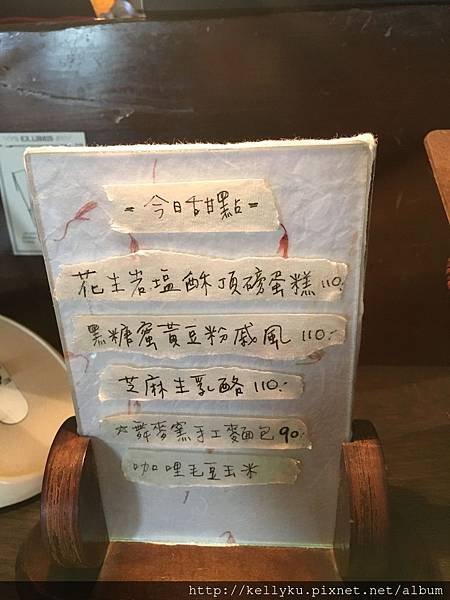 = 今日甜點 =
花生岩塩酥頂磅蛋糕 110.
黑糖蜜黃豆粉戚風 110.-
芝麻生乳酪 110.-
大舞麥窯手工麵包 90.-
咖哩毛豆玉米
http://kellyku.pixnet.net/album